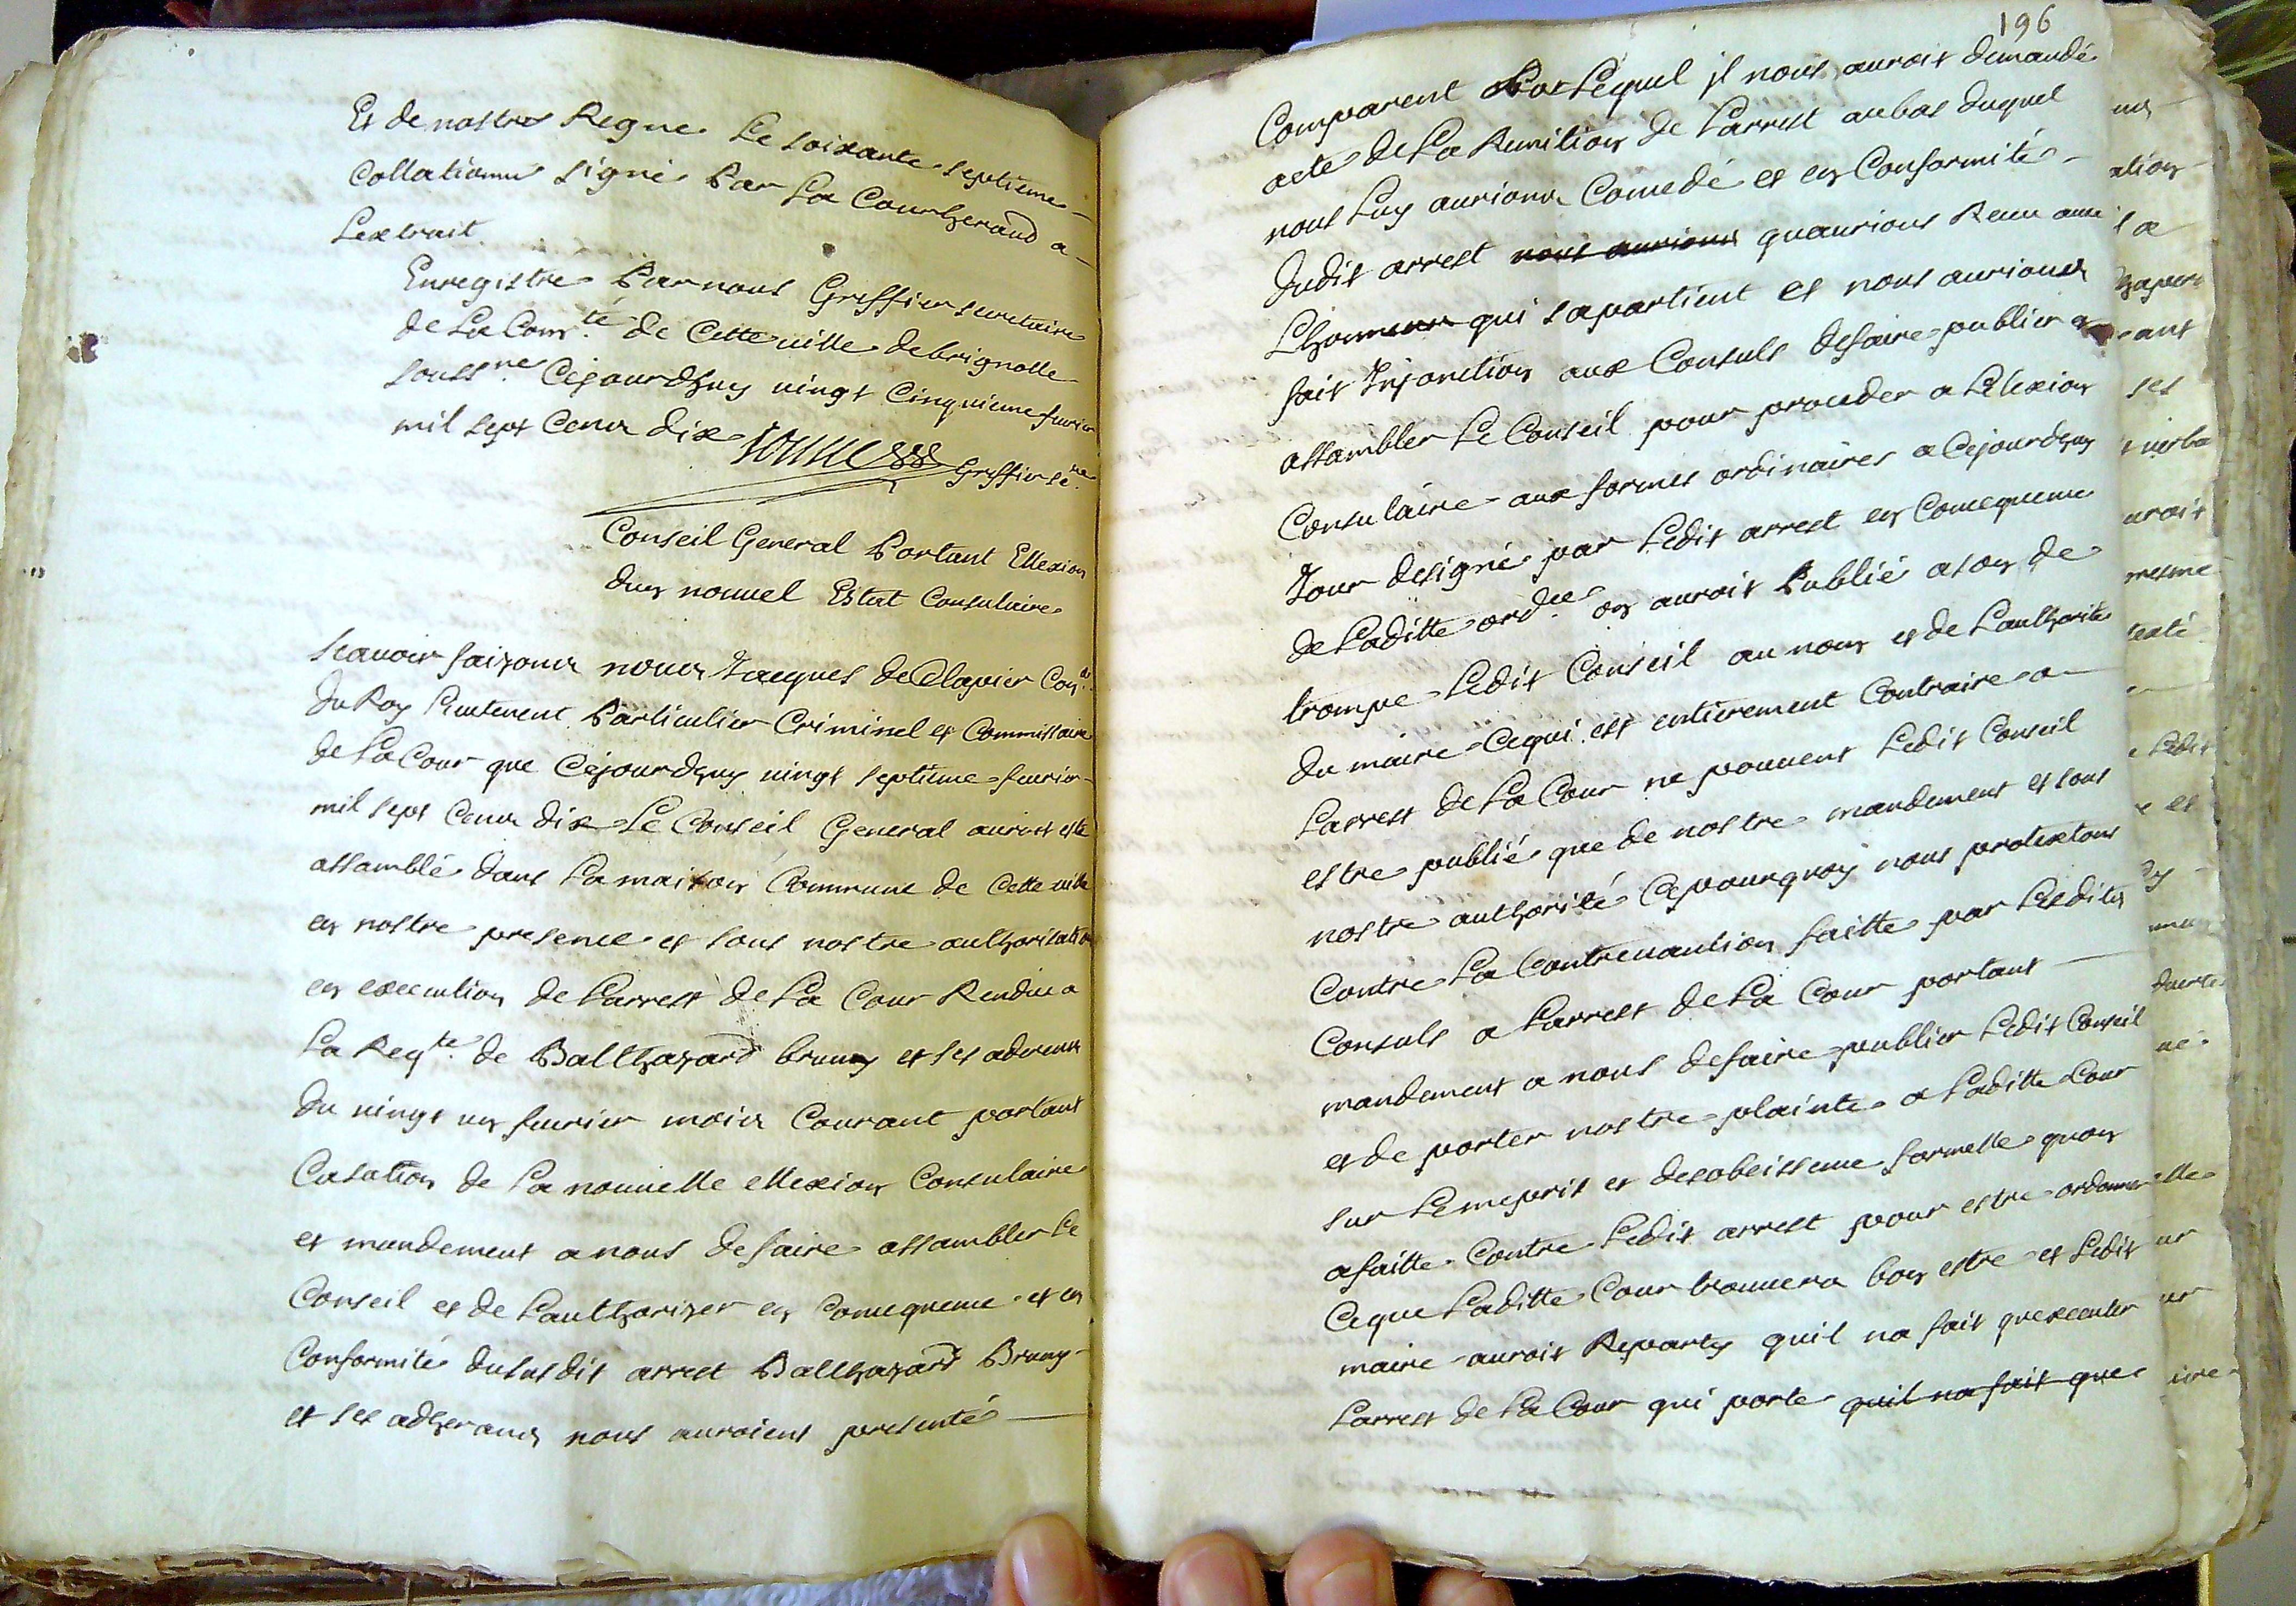 Et de nostre Regne Le soixante septieme
Collationné signé Par La Cour herand a
Lextrait
Enregistré Par nous Greffier secretaire
de La Com.té de Cette ville de brignolle
souss.né Cejourdhuy vingt Cinquieme fevrier
mil sept Cens dix
Greffier se.re
Conseil General Portant Ellexion
dun nouvel Estat Consulaire
Scavoir faisons nous Jacques de Clapier Con.er
du Roy Lieutenent Particulier Criminel et Commissaire
de La Cour que Cejourdhuy vingt septieme fevrier
mil sept Cens dix Le Conseil General auroit esté
assamblé dans La maison Commune de Cette ville
en nostre presence et sous nostre authorisation
en execution de Larrest de La Cour Rendu a
La Reqte. de Balthazard bruny et ses adherens
du vingt un fevrier mois Courant portant
Casation de La nouvelle ellexion Consulaire
et mandement a nous de faire assambler Le
Conseil et de Lauthorizer en Consequence et en
Conformité du susdit arrest Balthazard Bruny
et ses adherans nous auroient presenté
196
Comparent Par Lequel jl nous auroit demandé
acte de La Remition de Larrest aubas duquel
nous Luy aurions Concedé et en Conformité
dudit arrest nous aurions quaurions Receu avec
Lhonneur qui sapartient et nous aurions
fait Injonction aux Consuls de faire publier et
assambler Le Conseil pour proceder a Lelexion
Consulaire aux formes ordinaires a Cejourdhuy
Jour designé par Ledit arrest en Consequence
de Laditte ord.ce on auroit Publié a son de
trompe Ledit Conseil au nom et de Lauthorité
du maire Cequi est entierement Contraire a
Larrest de La Cour ne pouvent Ledit Conseil
estre publié que de nostre mandement et sous
nostre authorité Cepourquoy nous protextons
Contre La Contrevantion faitte par Lesdits
Consuls a Larrest de La Cour portant
mandement a nous de faire publier Ledit Conseil
et de porter nostre plainte a Laditte Cour
sur Le mepris et desobeissence formelle quon
a faitte Contre Ledit arrest pour estre ordonné
Ceque Laditte Cour trouvera bon estre et Ledit
maire auroit Reparty quil na fait quexecuter
Larrest de La Cour qui porte quil na fait que